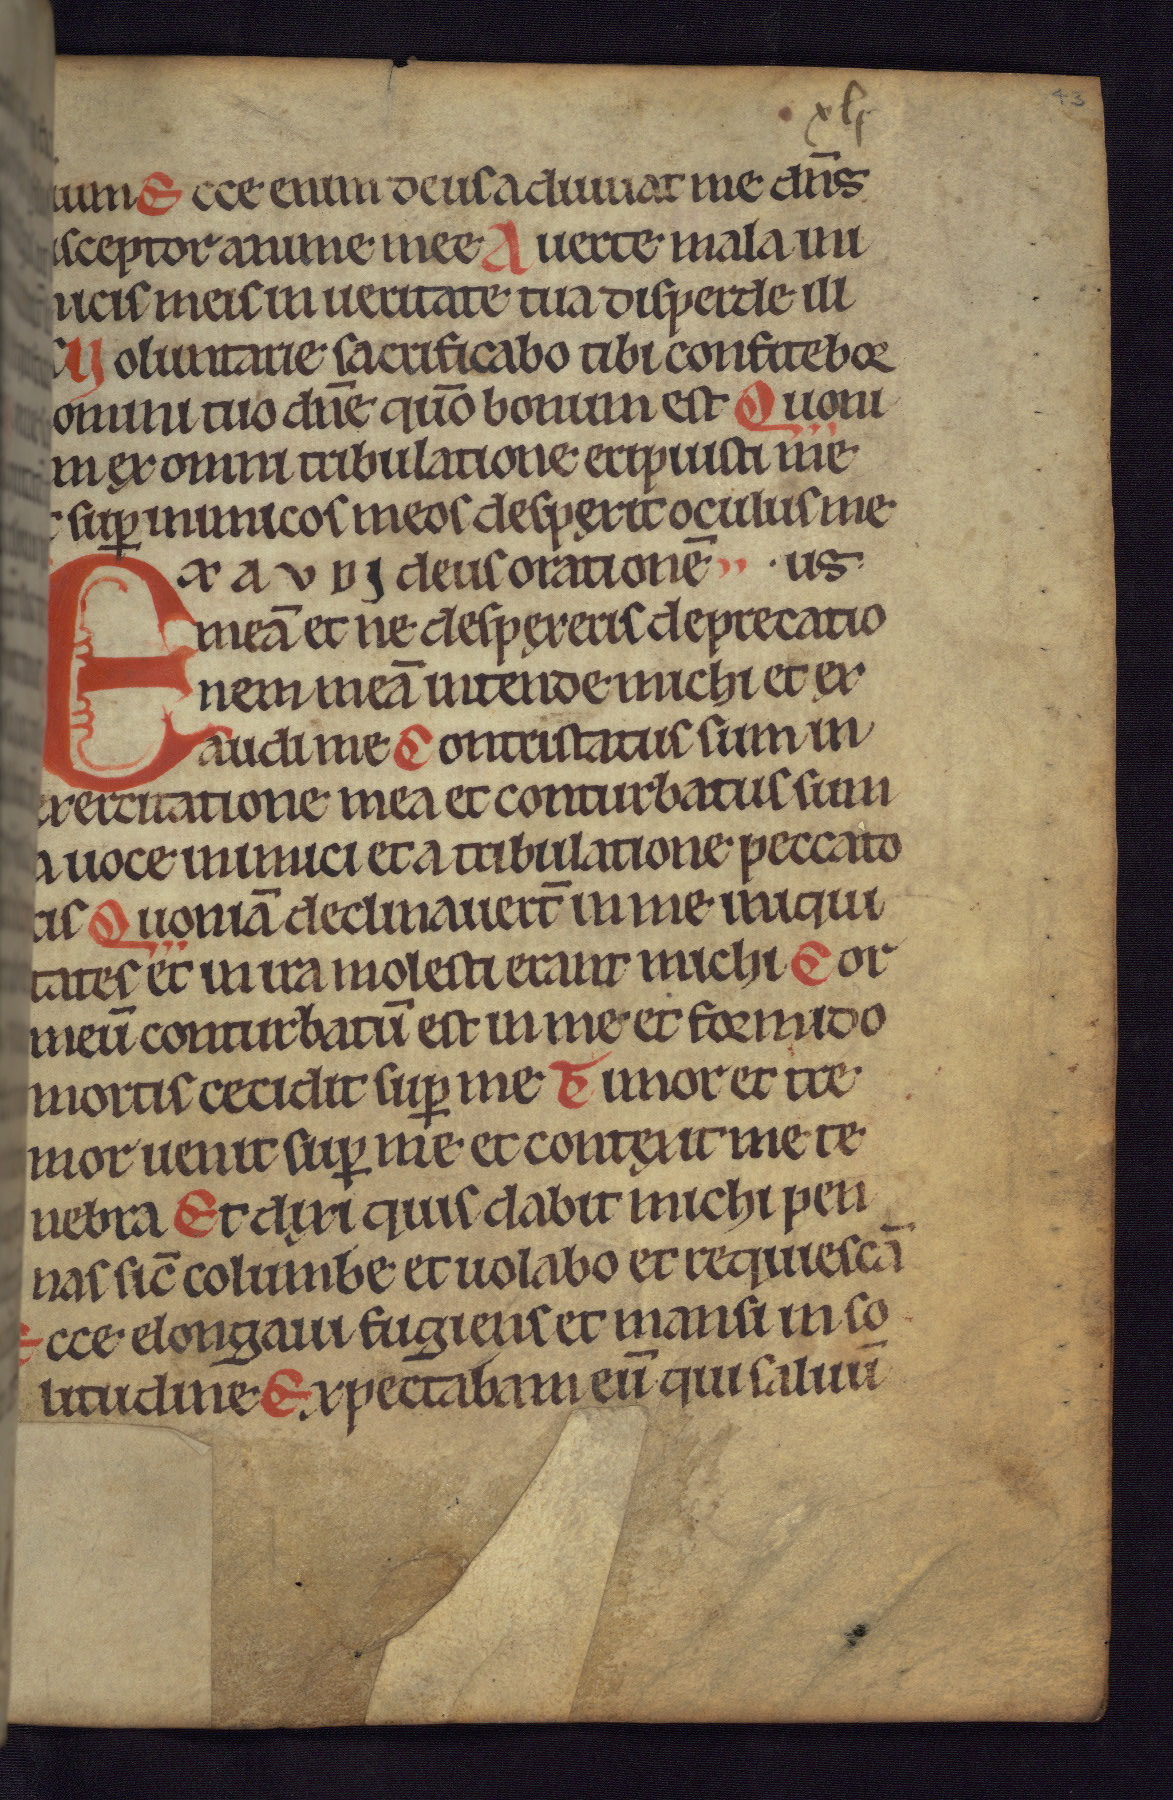 xlj
43
uum Ecce enim deus adiuuat me dn̄s
usceptor anime mee Auerte mala ini
micis meis in ueritate tua disperde ill
Voluntarie sacrificabo tibi confitebor
omini tuo dn̄e qūo bonum est Quoni
m ex omni tribulatione eripuisti me
t suꝑ inimicos meos despexit oculus me
EXAVDJ deus orationē us
meā et ne despexeris deprecatio
nem meā intende michi et ex
audi me Contristatus sum in
exercitatione mea et conturbatus sum
a uoce inimici et a tribulatione peccato
ris Quoniā declinauert̄ in me iniqui
tates et in ira molesti erant michi Cor
meū conturbatū est in me et formido
mortis cecidit suꝑ me Timor et tre
mor uenit suꝑ me et contexit me te
nebra Et dixi quis dabit michi pen
nas sic̄ columbe et uolabo et requiescā
Ecce elongaui fugiens et mansi in so
litudine Expectabam eū qui saluū